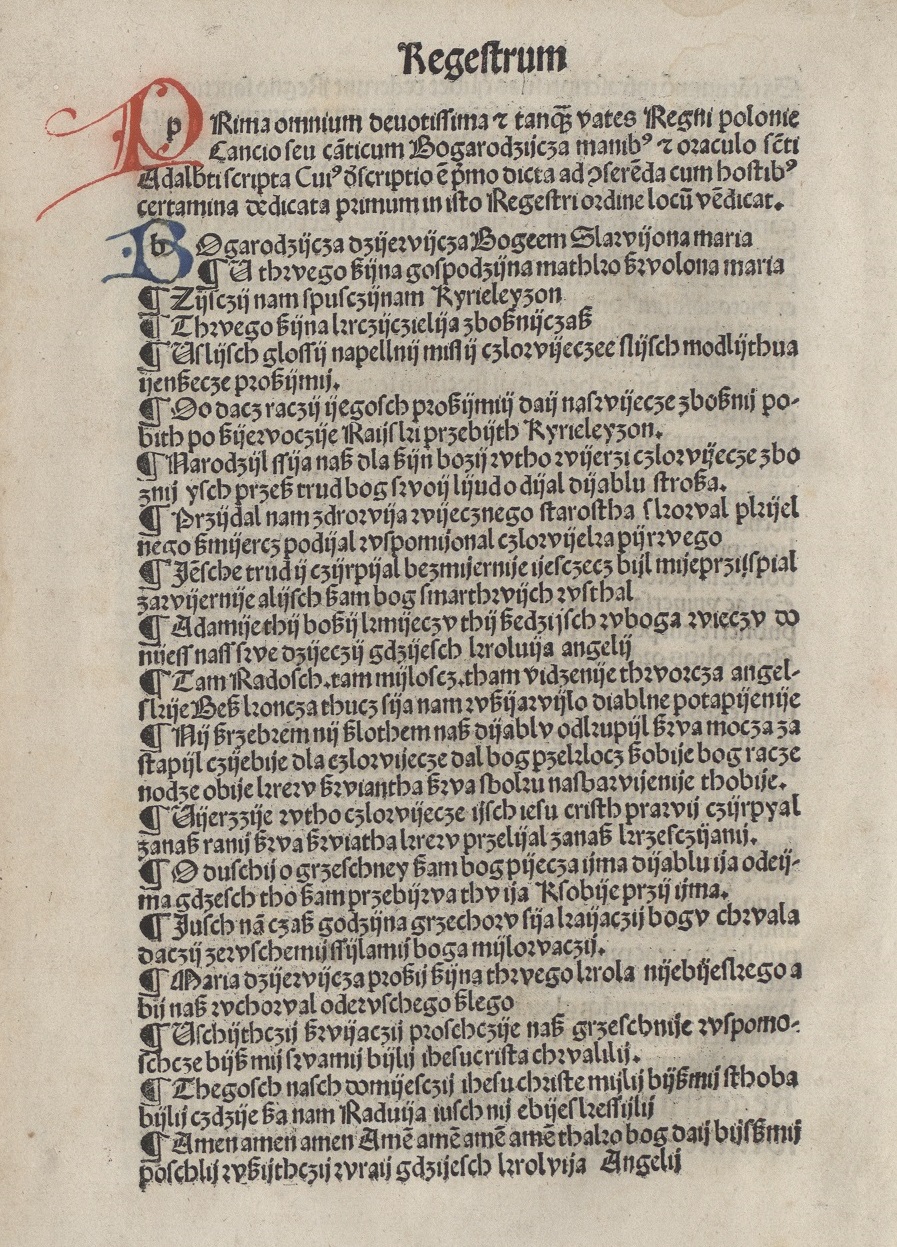 Regestrum
PRima omnium deuotissima ⁊ tanqȝ vates Regni polonie
Cancio seu cāticum Bogarodzijcza manibꝰ ⁊ oraculo scti
Adalbti scripta Cuiꝰ dscriptio ē pmo dicta ad ꝯserēda cum hostibꝰ
certamina dedicata primum in isto Regestri ordine locū vēdicat.
BOgarodzijcza dzijewijcza Bogeem Slawijona maria
¶ U thwego ßijna gospodzijna mathko ßwolona maria
¶ Zijsczij nam spusczijnam Kyrieleyzon
¶ Thwego ßijna krczijczielija zboßnijczaß
¶ Uslijsch glossij napellnij mislij czlowijeczee slijsch modlijthua
ijenßecze proßijmij.
¶ Oo dacz raczij ijegosch proßijmiij daij naswijecze zboßnij po-
bith po ßijewoczije Raijski przebijth Kyrieleyzon.
¶ Narodzijl ssija naß dla ßijn bozij wtho wijerzi czlowijecze zbo
znij ysch przeß trud bog swoij lijud odijal dijablu stroßa.
¶ Przijdal nam zdrowija wijecznego starostha skowal pkijel
nego ßmijercz podijal wspomijonal czlowijeka pijrwego
¶ Jēsche trud ij czijrpijal bezmijernije ijesczecz bijl mijeprzijspial
zawijernije alijsch ßam bog smarthwijch wsthal
¶ Adamije thij boßij kmijeczv thij ßedzijsch wboga wieczv do
nijess nass swe dzijeczij gdzijesch kroluija angelij
¶ Tam Radosch.tam mijloscz.tham vidzenije thworcza angel-
skije Beß koncza thucz sija nam wßijawijlo diablne potapijenije
¶ Nij ßrzebrem nij ßlothem naß dijablv odkupijl ßwa mocza za
stapijl czijebije dla czlowijecze dal bog pzeklocz ßobije bog racze
nodze obije krew ßwiantha ßwa sboku nasbawijenije thobije.
¶ Uijerzzije wtho czlowijecze ijsch iesu cristh prawij czijrpyal
zanaß ranij ßwa ßwiatha krew przelijal zanaß krzesczijanij.
¶ O duschij o grzeschney ßam bog pijecza ijma dijablu ija odeij-
ma gdzesch tho ßam przebijwa thv ija Ksobije przij ijma.
¶ Jusch nā czaß godzijna grzechow sija kaijaczij bogv chwala
daczij zewschemij ssijlamij boga mijlowaczij.
¶ Maria dzijewijcza proßij ßijna thwego krola nijebijeskego a
bij naß wchowal odewschego ßlego
¶ Uschijthczij ßwijaczij proschczije naß grzeschnije wspomo-
schcze bijß mij swamij bijlij ihesucrista chwalilij.
¶ Thegosch nasch domijesczij ihesu christe mijlij bijßmij sthoba
bijlij czdzije ßa nam Raduija iusch nij ebijeskessijlij
¶ Amen amen amen Amē amē amē amē thako bog daij bijsßmij
poschlij wßijthczij wraij gdzijesch krolvija Angelij